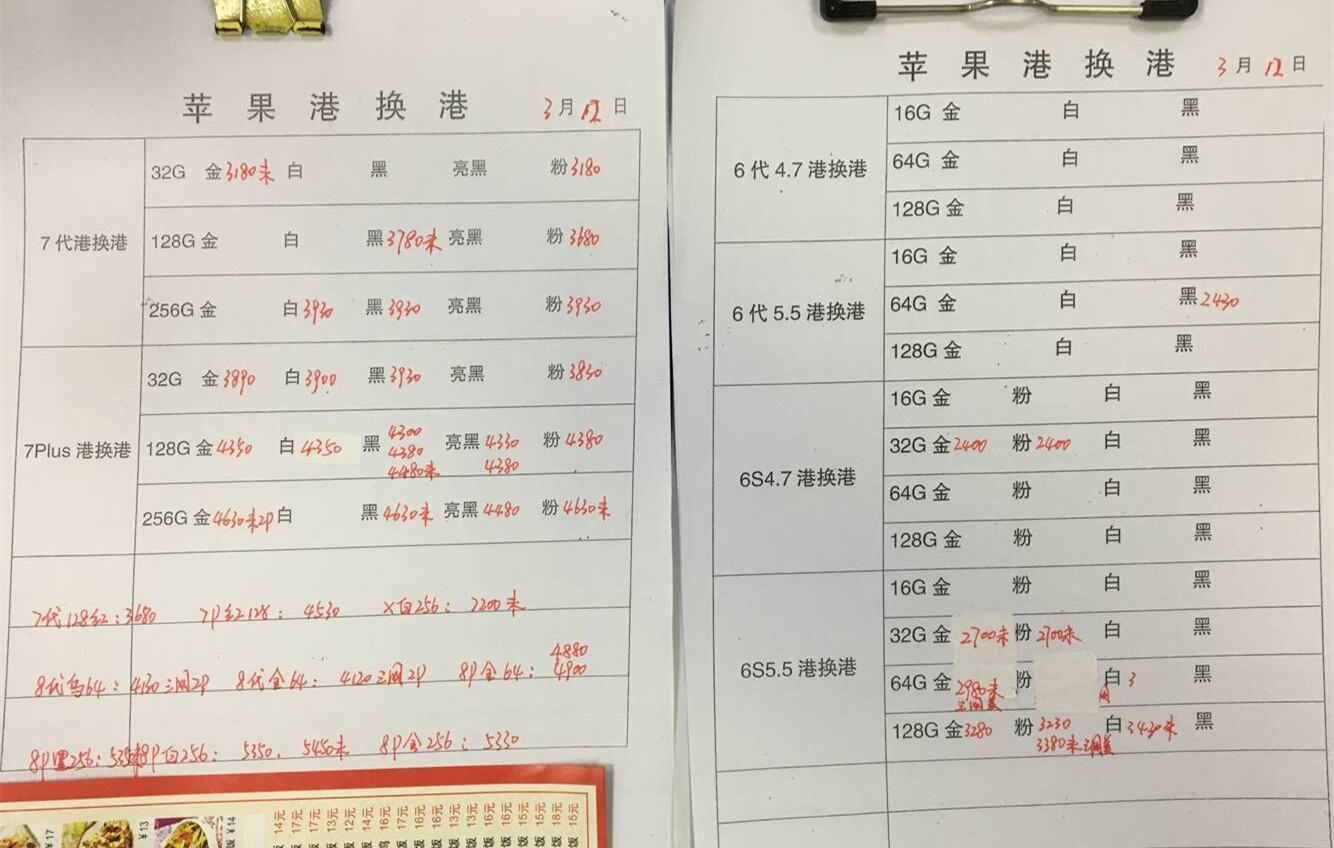 苹果港换港 3月12日
7代港换港
32G 金3180未 白 黑 亮黑 粉3180
128G 金 白 黑3780未 亮黑 粉3680
256G 金 白3930 黑3930 亮黑 粉3930
7Plus港换港
32G 金3890 白3900 黑3930 亮黑 粉3830
128G 金4350 白4350 黑4300 4380 4480未 亮黑4330 4380 粉4380
256G 金4630未2P 白 黑4630未 亮黑4480 粉4630未
7代128红：3680 7P红128：4530 X白256：7200未
8代乌64：4130三网2P 8代金64：4120三网2P 8P金64：4880 4900
8P黑256： 8P白256：5350. 5450未 8P金256：5330
¥17 ¥13 饭¥14
14元 17元 17元 13元 12元 14元 16元 17元 16元 16元 13元 13元 16元 16元 15元 15元 18元 15元
苹果港换港 3月12日
6代4.7港换港
16G 金 白 黑
64G 金 白 黑
128G 金 白 黑
6代5.5港换港
16G 金 白 黑
64G 金 白 黑2430
128G 金 白 黑
6S4.7港换港
16G 金 粉 白 黑
32G 金2400 粉2400 白 黑
64G 金 粉 白 黑
128G 金 粉 白 黑
6S5.5港换港
16G 金 粉 白 黑
32G 金2700未 粉2700未 白 黑
64G 金2980未 三网美 粉 白3 黑
128G 金3280 粉3230 3380未三网美 白3430未 黑